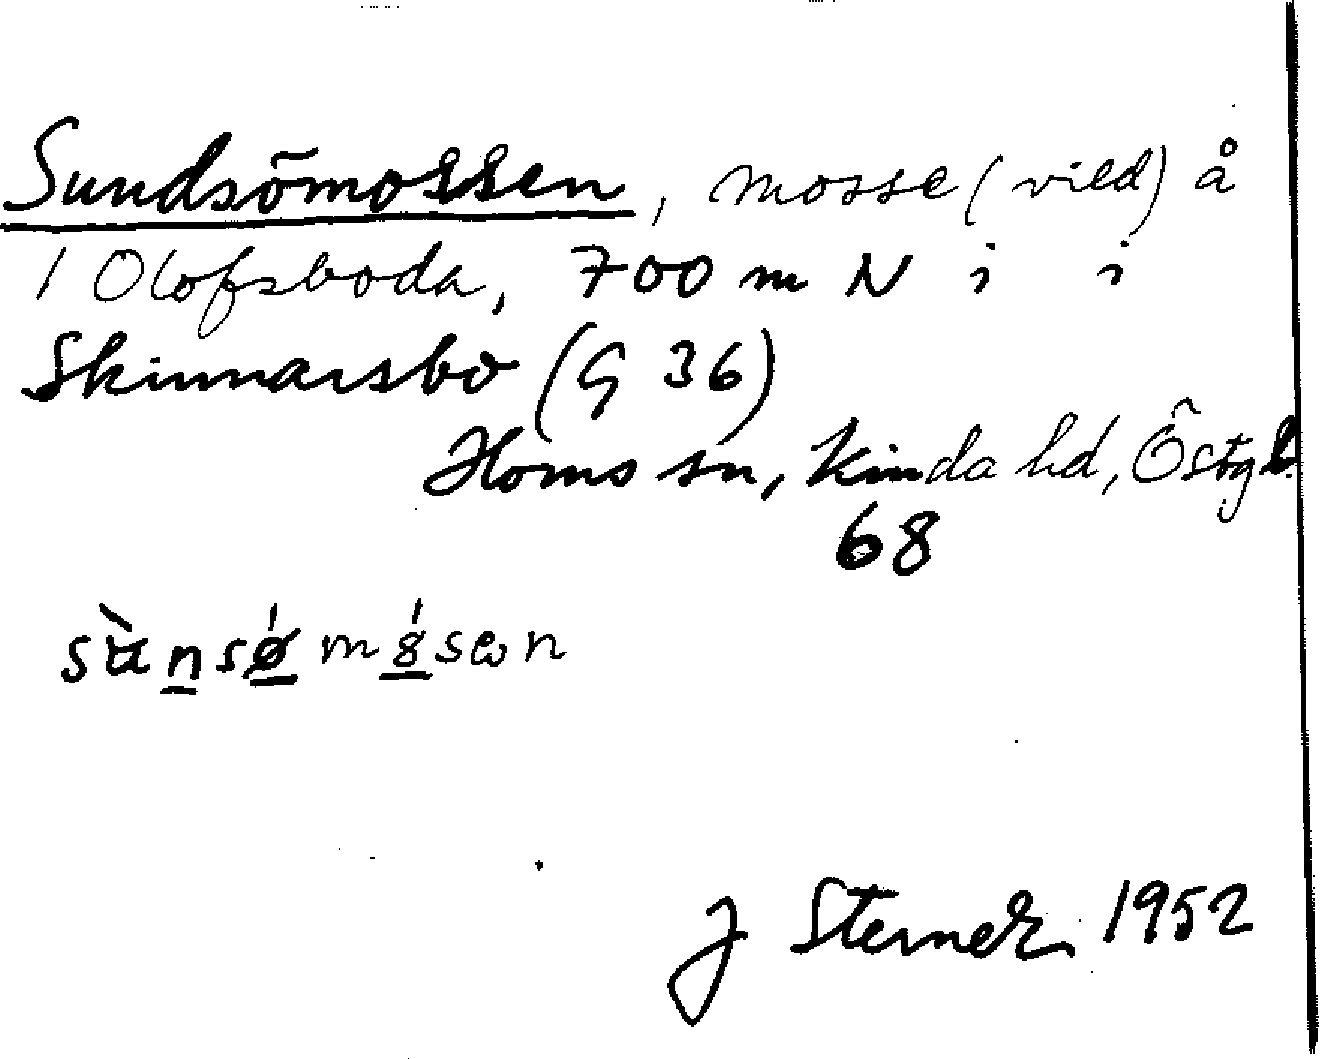 Sundsömossen, mosse (vild) å
1 Olofsboda, 700 m N i i
Skinnarsbo (G 36)
Horns sn, Kinda hd, Östgl.
68
J Sterner 1952